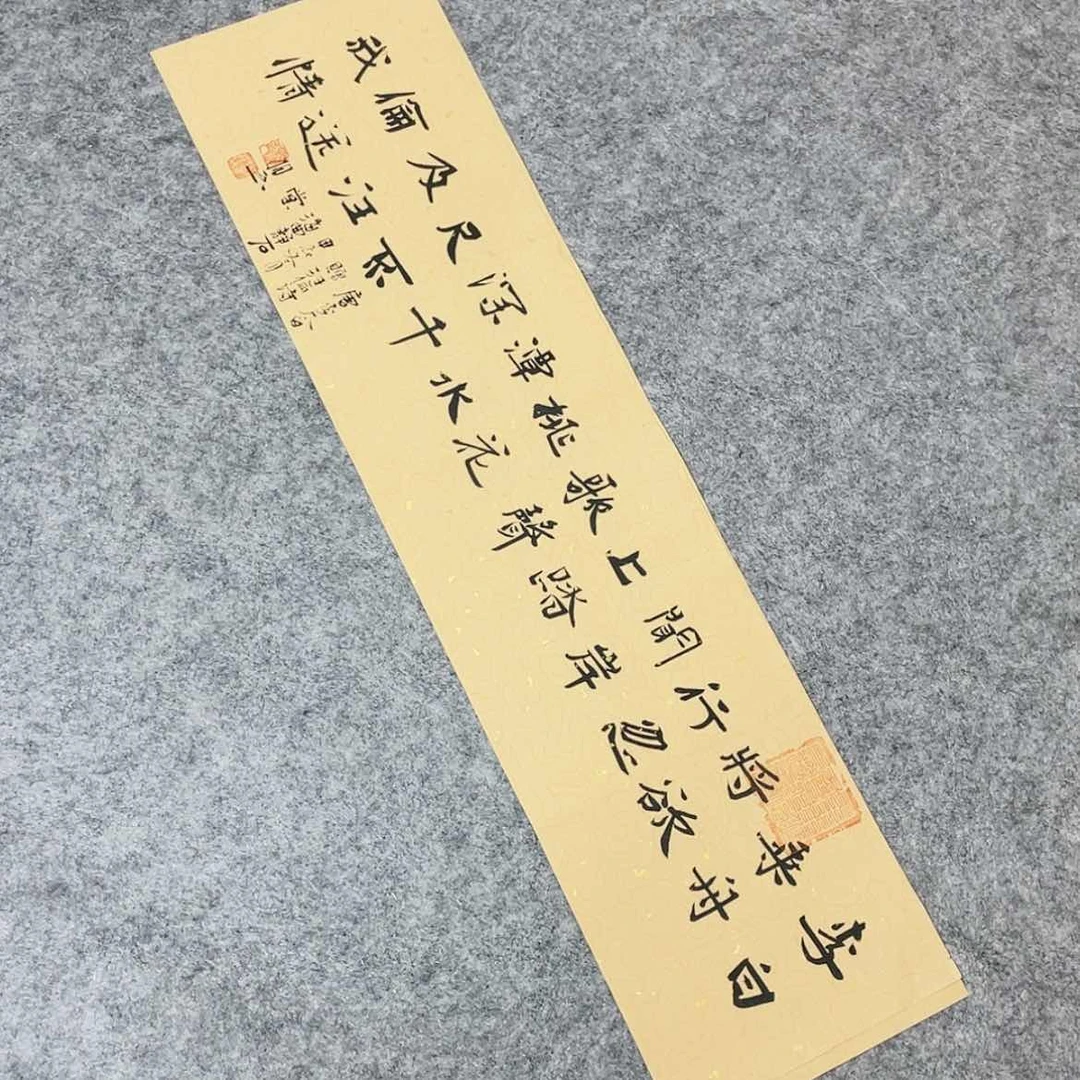 李白
乘舟
將欲
行忽
聞岸
上踏
歌聲
桃花
潭水
深千
尺不
及汪
倫送
我情